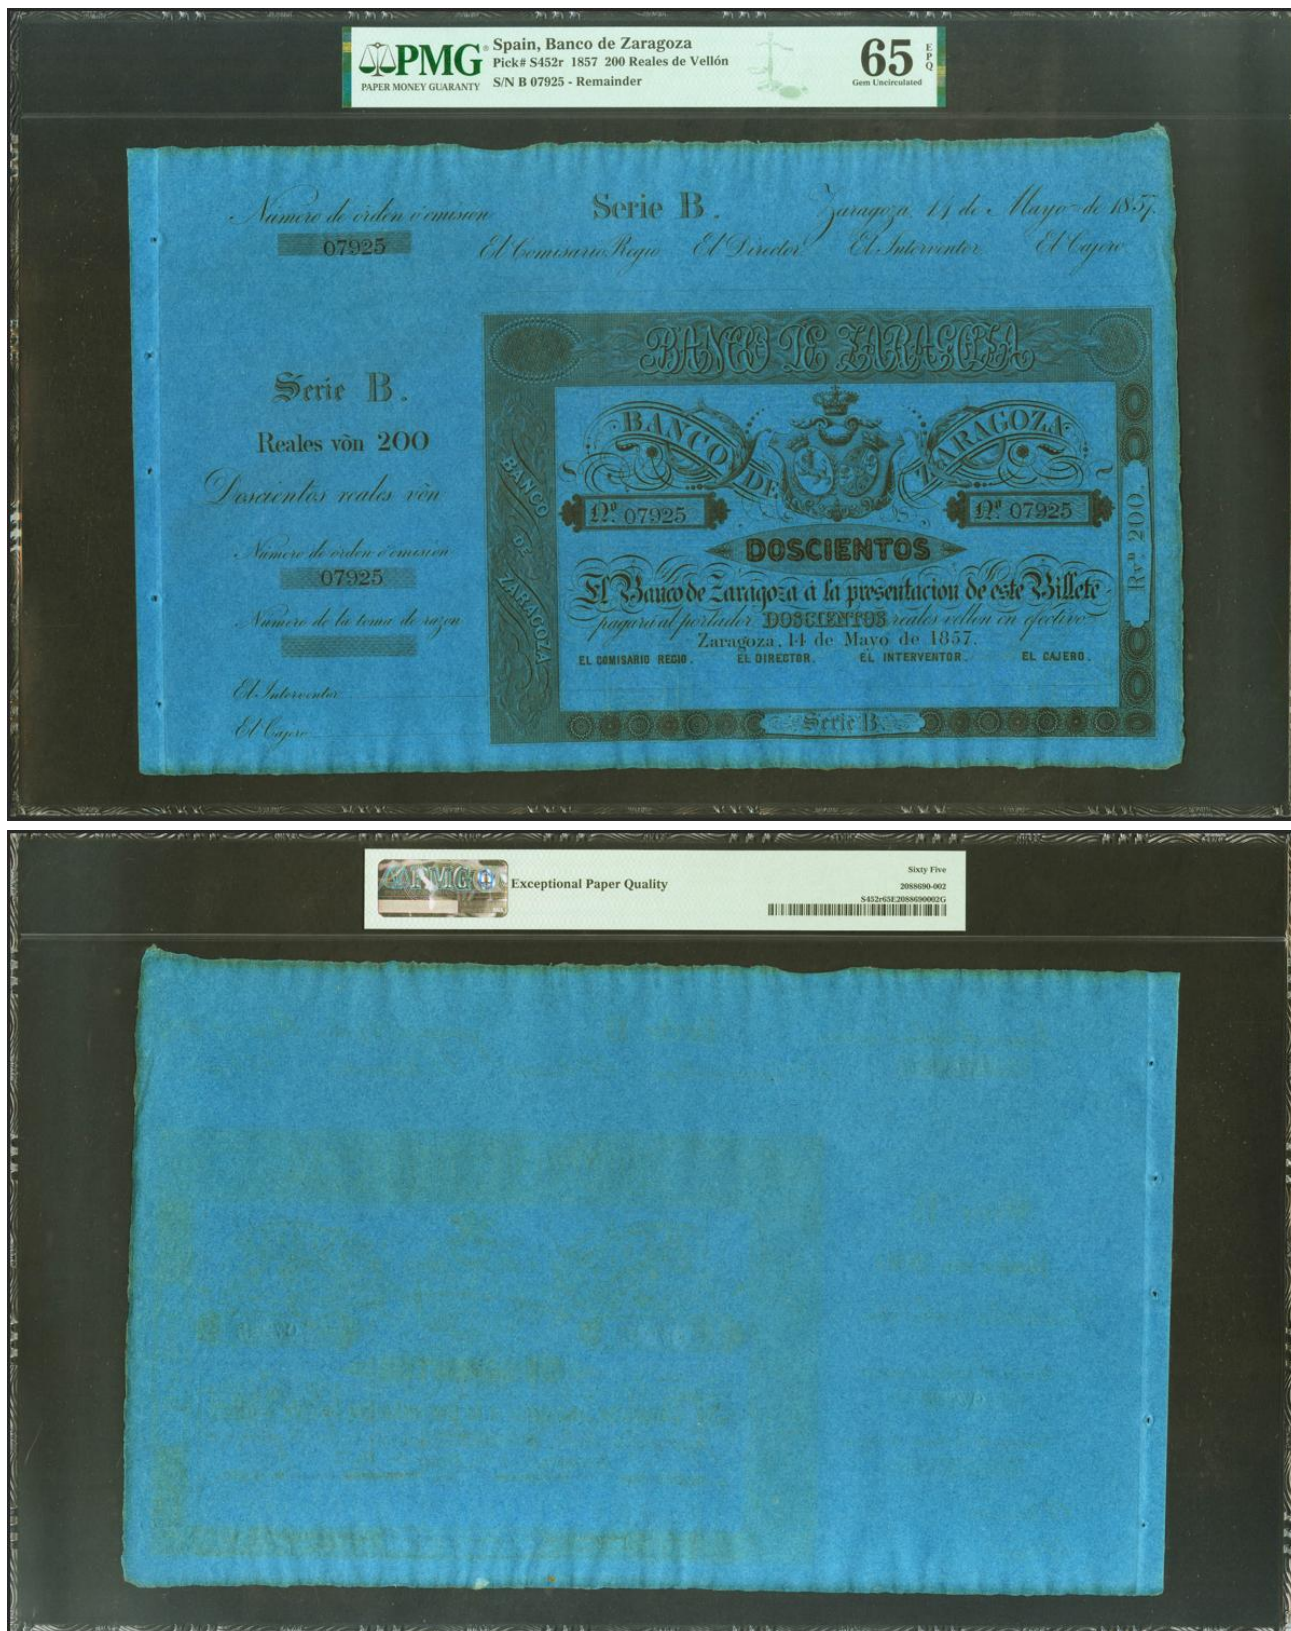 PMG
PAPER MONEY GUARANTY
Spain, Banco de Zaragoza
Pick# S452r 1857 200 Reales de Vellón
S/N B 07925 - Remainder
65 EPQ
Gem Uncirculated
Numero de órden ó emision
07925
Serie B.
Zaragoza, 14 de Mayo de 1857.
El Comisario Regio El Director El Interventor El Cajero
Serie B.
Reales vòn 200
Doscientos reales vòn
Numero de órden ó emision
07925
Numero de la toma de razon
El Interventor
El Cajero
BANCO DE ZARAGOZA
BANCO DE ZARAGOZA
BANCO DE ZARAGOZA
Nº 07925
Nº 07925
DOSCIENTOS
El Banco de Zaragoza á la presentacion de este Billete
pagará al portador DOSCIENTOS reales vellon en efectivo
Zaragoza, 14 de Mayo de 1857.
EL COMISARIO REGIO. EL DIRECTOR. EL INTERVENTOR. EL CAJERO.
Serie B.
Rvn 200.
PMG
Exceptional Paper Quality
Sixty Five
2088690-002
S452r65E2088690002G